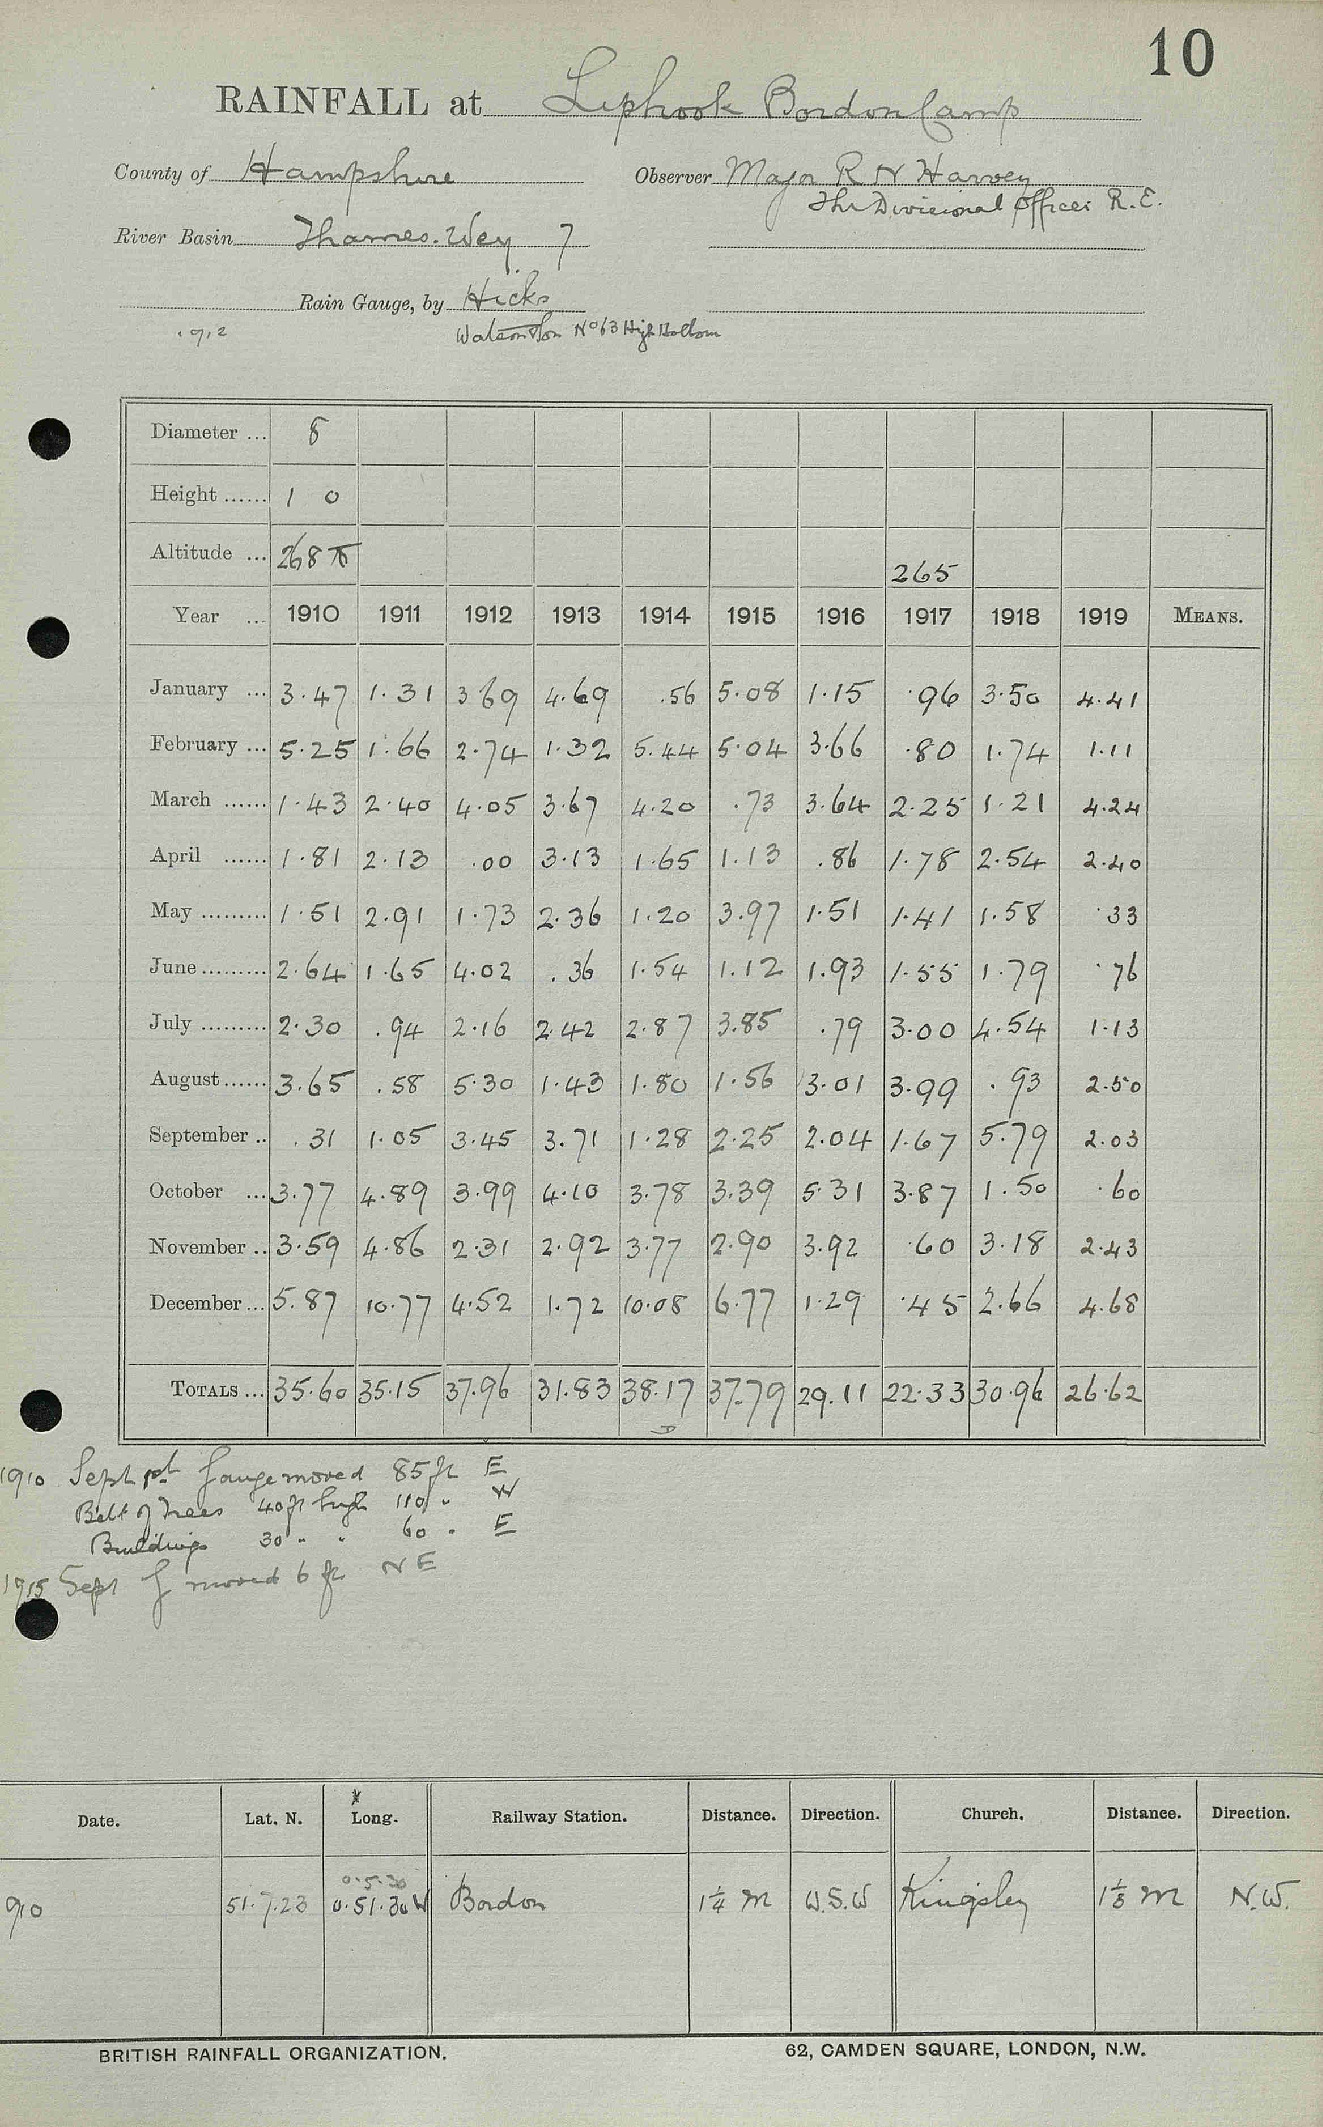 10
RAINFALL at Liphook Bordon Camp
County of Hampshire Observer Major R N Harvey
The Divisional Officer R.E.
River Basin Thames. Wey 7
Rain Gauge, by Hicks
Watson & Son No 63 High Holborn
Diameter ... 8
Height ...... 1 0
Altitude ... 268 265
Year ... 1910 1911 1912 1913 1914 1915 1916 1917 1918 1919 MEANS.
January ... 3.47 1.31 3.69 4.69 .56 5.08 1.15 .96 3.50 4.41
February ... 5.25 1.66 2.74 1.32 5.44 5.04 3.66 .80 1.74 1.11
March ...... 1.43 2.40 4.05 3.67 4.20 .73 3.64 2.25 1.21 4.24
April ...... 1.81 2.13 .00 3.13 1.65 1.13 .86 1.78 2.54 2.40
May ......... 1.51 2.91 1.73 2.36 1.20 3.97 1.51 1.41 1.58 .33
June ......... 2.64 1.65 4.02 .36 1.54 1.12 1.93 1.55 1.79 .76
July ......... 2.30 .94 2.16 2.42 2.87 3.85 .79 3.00 4.54 1.13
August ...... 3.65 .58 5.30 1.43 1.80 1.56 3.01 3.99 .93 2.50
September .. .31 1.05 3.45 3.71 1.28 2.25 2.04 1.67 5.79 2.03
October ... 3.77 4.89 3.99 4.10 3.78 3.39 5.31 3.87 1.50 .60
November .. 3.59 4.86 2.31 2.92 3.77 2.90 3.92 .60 3.18 2.43
December ... 5.87 10.77 4.52 1.72 10.08 6.77 1.29 .45 2.66 4.68
TOTALS ... 35.60 35.15 37.96 31.83 38.17 37.79 29.11 22.33 30.96 26.62
1910 Sept 1st Gauge moved 85 ft E
Belt of Trees 40 ft high 110 " W
Buildings 30 " " 60 " E
1915 Sept G moved 6 ft NE
Date. Lat. N. Long. Railway Station. Distance. Direction. Church. Distance. Direction.
0.5.30
910 51.7.23 0.51.30 W Bordon 1¼ M W.S.W Kingsley 1⅓ M N.W.
BRITISH RAINFALL ORGANIZATION. 62, CAMDEN SQUARE, LONDON, N.W.